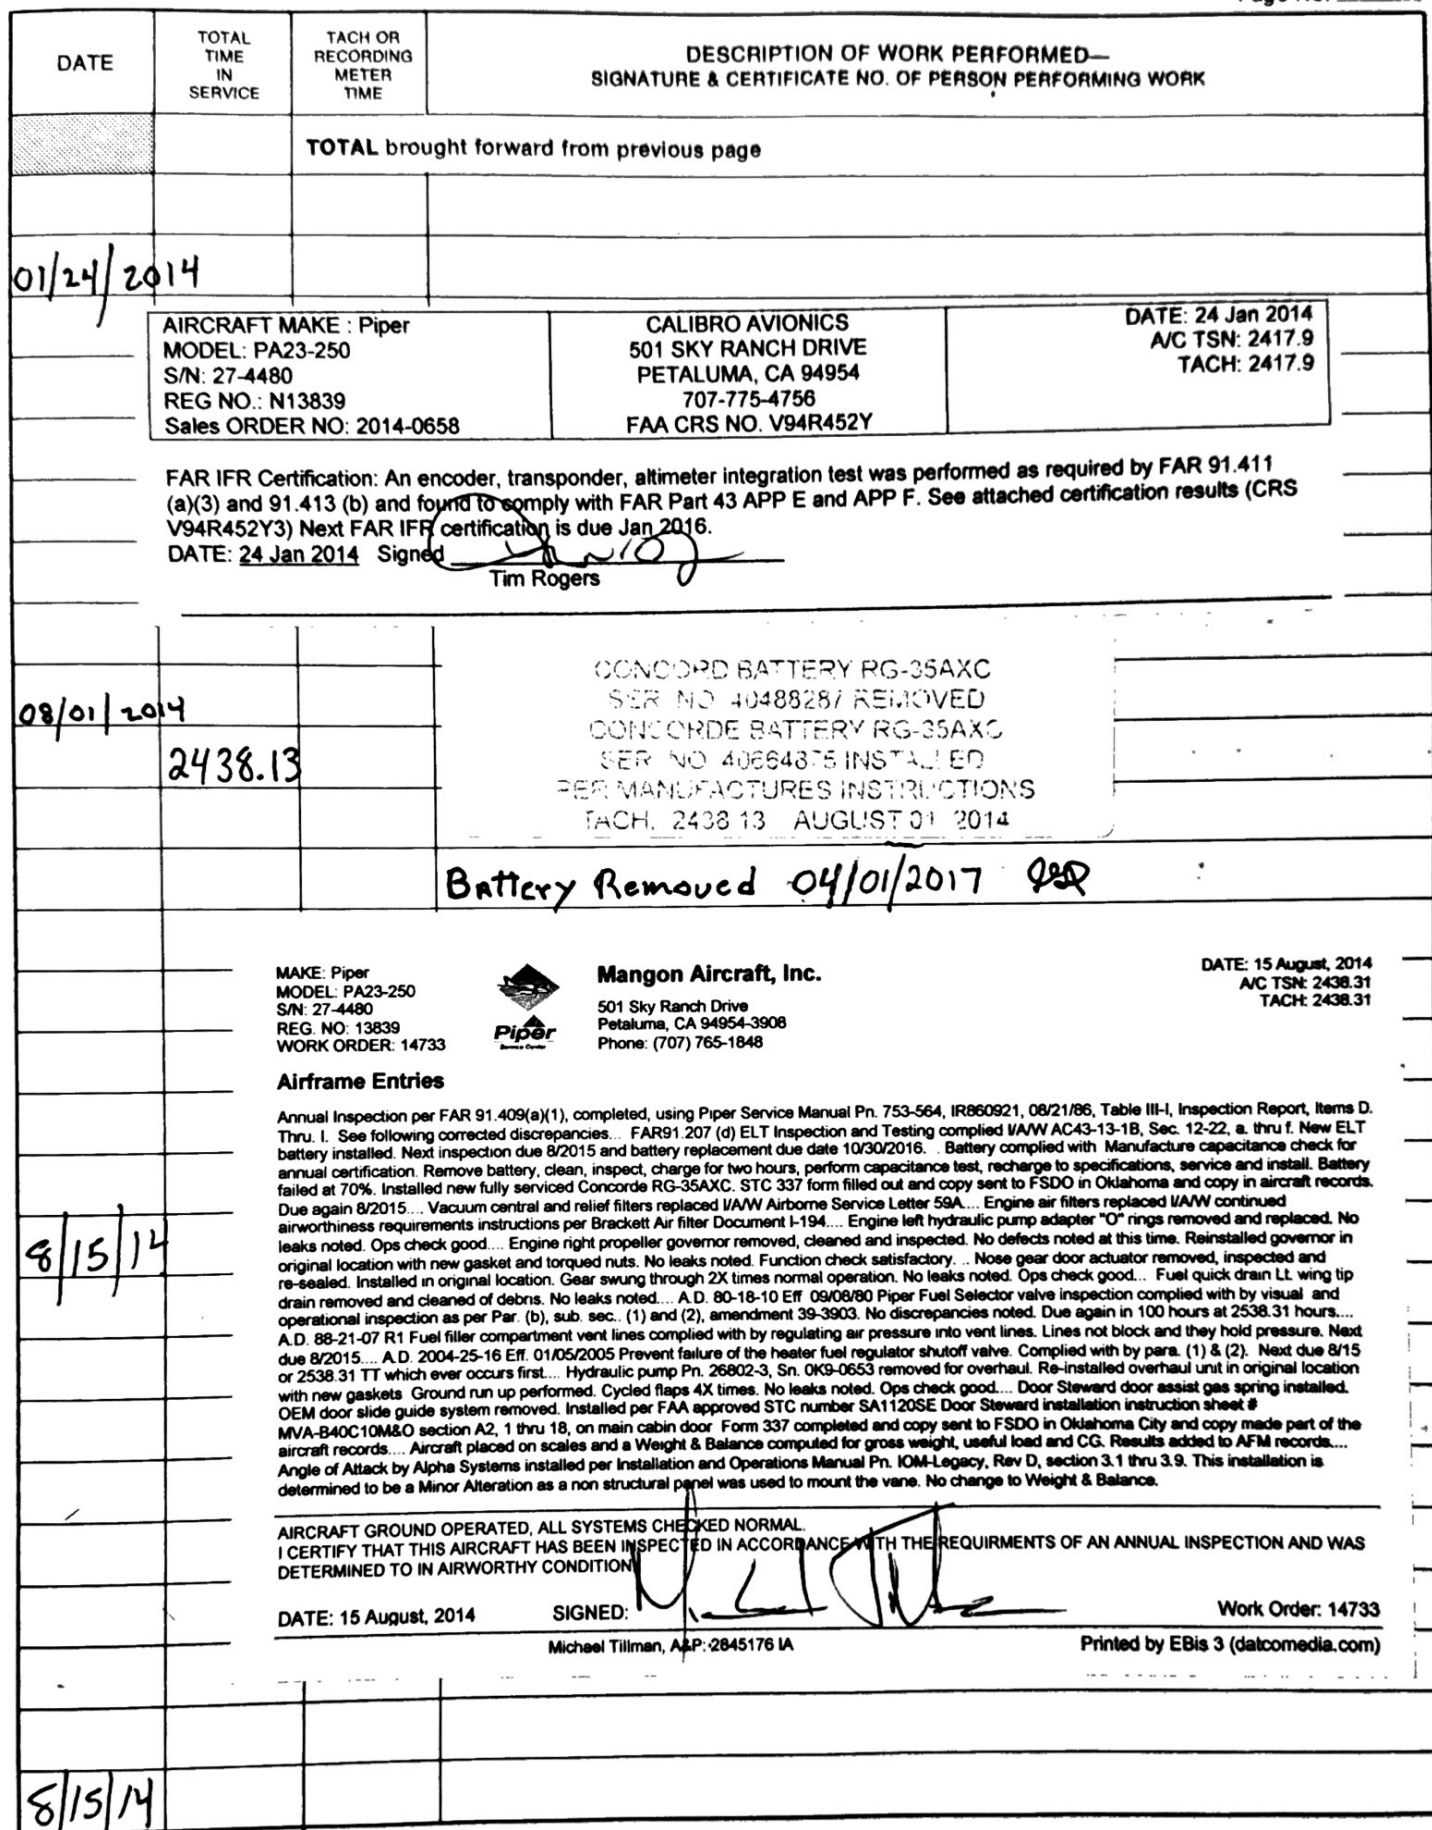 Page No.
DATE
TOTAL
TIME
IN
SERVICE
TACH OR
RECORDING
METER
TIME
DESCRIPTION OF WORK PERFORMED—
SIGNATURE & CERTIFICATE NO. OF PERSON PERFORMING WORK
TOTAL brought forward from previous page
01/24/2014
AIRCRAFT MAKE : Piper
MODEL: PA23-250
S/N: 27-4480
REG NO.: N13839
Sales ORDER NO: 2014-0658
CALIBRO AVIONICS
501 SKY RANCH DRIVE
PETALUMA, CA 94954
707-775-4756
FAA CRS NO. V94R452Y
DATE: 24 Jan 2014
A/C TSN: 2417.9
TACH: 2417.9
FAR IFR Certification: An encoder, transponder, altimeter integration test was performed as required by FAR 91.411
(a)(3) and 91.413 (b) and found to comply with FAR Part 43 APP E and APP F. See attached certification results (CRS
V94R452Y3) Next FAR IFR certification is due Jan 2016.
DATE: 24 Jan 2014 Signed
Tim Rogers
08/01/2014
2438.13
CONCORD BATTERY RG-35AXC
SER NO 40488287 REMOVED
CONCORDE BATTERY RG-35AXC
SER NO 40664875 INSTALLED
PER MANUFACTURES INSTRUCTIONS
TACH. 2438 13 AUGUST 01 2014
Battery Removed 04/01/2017
MAKE: Piper
MODEL: PA23-250
S/N: 27-4480
REG. NO: 13839
WORK ORDER: 14733
Piper
Service Center
Mangon Aircraft, Inc.
501 Sky Ranch Drive
Petaluma, CA 94954-3908
Phone: (707) 765-1848
DATE: 15 August, 2014
A/C TSN: 2438.31
TACH: 2438.31
Airframe Entries
8/15/14
Annual Inspection per FAR 91.409(a)(1), completed, using Piper Service Manual Pn. 753-564, IR860921, 08/21/86, Table III-I, Inspection Report, Items D.
Thru. I. See following corrected discrepancies... FAR91.207 (d) ELT Inspection and Testing complied I/A/W AC43-13-1B, Sec. 12-22, a. thru f. New ELT
battery installed. Next inspection due 8/2015 and battery replacement due date 10/30/2016. . Battery complied with Manufacture capacitance check for
annual certification. Remove battery, clean, inspect, charge for two hours, perform capacitance test, recharge to specifications, service and install. Battery
failed at 70%. Installed new fully serviced Concorde RG-35AXC. STC 337 form filled out and copy sent to FSDO in Oklahoma and copy in aircraft records.
Due again 8/2015.... Vacuum central and relief filters replaced I/A/W Airborne Service Letter 59A.... Engine air filters replaced I/A/W continued
airworthiness requirements instructions per Brackett Air filter Document I-194.... Engine left hydraulic pump adapter "O" rings removed and replaced. No
leaks noted. Ops check good.... Engine right propeller governor removed, cleaned and inspected. No defects noted at this time. Reinstalled governor in
original location with new gasket and torqued nuts. No leaks noted. Function check satisfactory. .. Nose gear door actuator removed, inspected and
re-sealed. Installed in original location. Gear swung through 2X times normal operation. No leaks noted. Ops check good... Fuel quick drain Lt. wing tip
drain removed and cleaned of debris. No leaks noted.... A.D. 80-18-10 Eff 09/08/80 Piper Fuel Selector valve inspection complied with by visual and
operational inspection as per Par. (b), sub. sec.. (1) and (2), amendment 39-3903. No discrepancies noted. Due again in 100 hours at 2538.31 hours....
A.D. 88-21-07 R1 Fuel filler compartment vent lines complied with by regulating air pressure into vent lines. Lines not block and they hold pressure. Next
due 8/2015.... A.D. 2004-25-16 Eff. 01/05/2005 Prevent failure of the heater fuel regulator shutoff valve. Complied with by para. (1) & (2). Next due 8/15
or 2538.31 TT which ever occurs first.... Hydraulic pump Pn. 26802-3, Sn. 0K9-0653 removed for overhaul. Re-installed overhaul unit in original location
with new gaskets Ground run up performed. Cycled flaps 4X times. No leaks noted. Ops check good.... Door Steward door assist gas spring installed.
OEM door slide guide system removed. Installed per FAA approved STC number SA1120SE Door Steward installation instruction sheet #
MVA-B40C10M&O section A2, 1 thru 18, on main cabin door Form 337 completed and copy sent to FSDO in Oklahoma City and copy made part of the
aircraft records.... Aircraft placed on scales and a Weight & Balance computed for gross weight, useful load and CG. Results added to AFM records....
Angle of Attack by Alpha Systems installed per Installation and Operations Manual Pn. IOM-Legacy, Rev D, section 3.1 thru 3.9. This installation is
determined to be a Minor Alteration as a non structural panel was used to mount the vane. No change to Weight & Balance.
AIRCRAFT GROUND OPERATED, ALL SYSTEMS CHECKED NORMAL.
I CERTIFY THAT THIS AIRCRAFT HAS BEEN INSPECTED IN ACCORDANCE WITH THE REQUIRMENTS OF AN ANNUAL INSPECTION AND WAS
DETERMINED TO IN AIRWORTHY CONDITION
DATE: 15 August, 2014
SIGNED:
Work Order: 14733
Michael Tillman, A&P: 2845176 IA
Printed by EBis 3 (datcomedia.com)
8/15/14